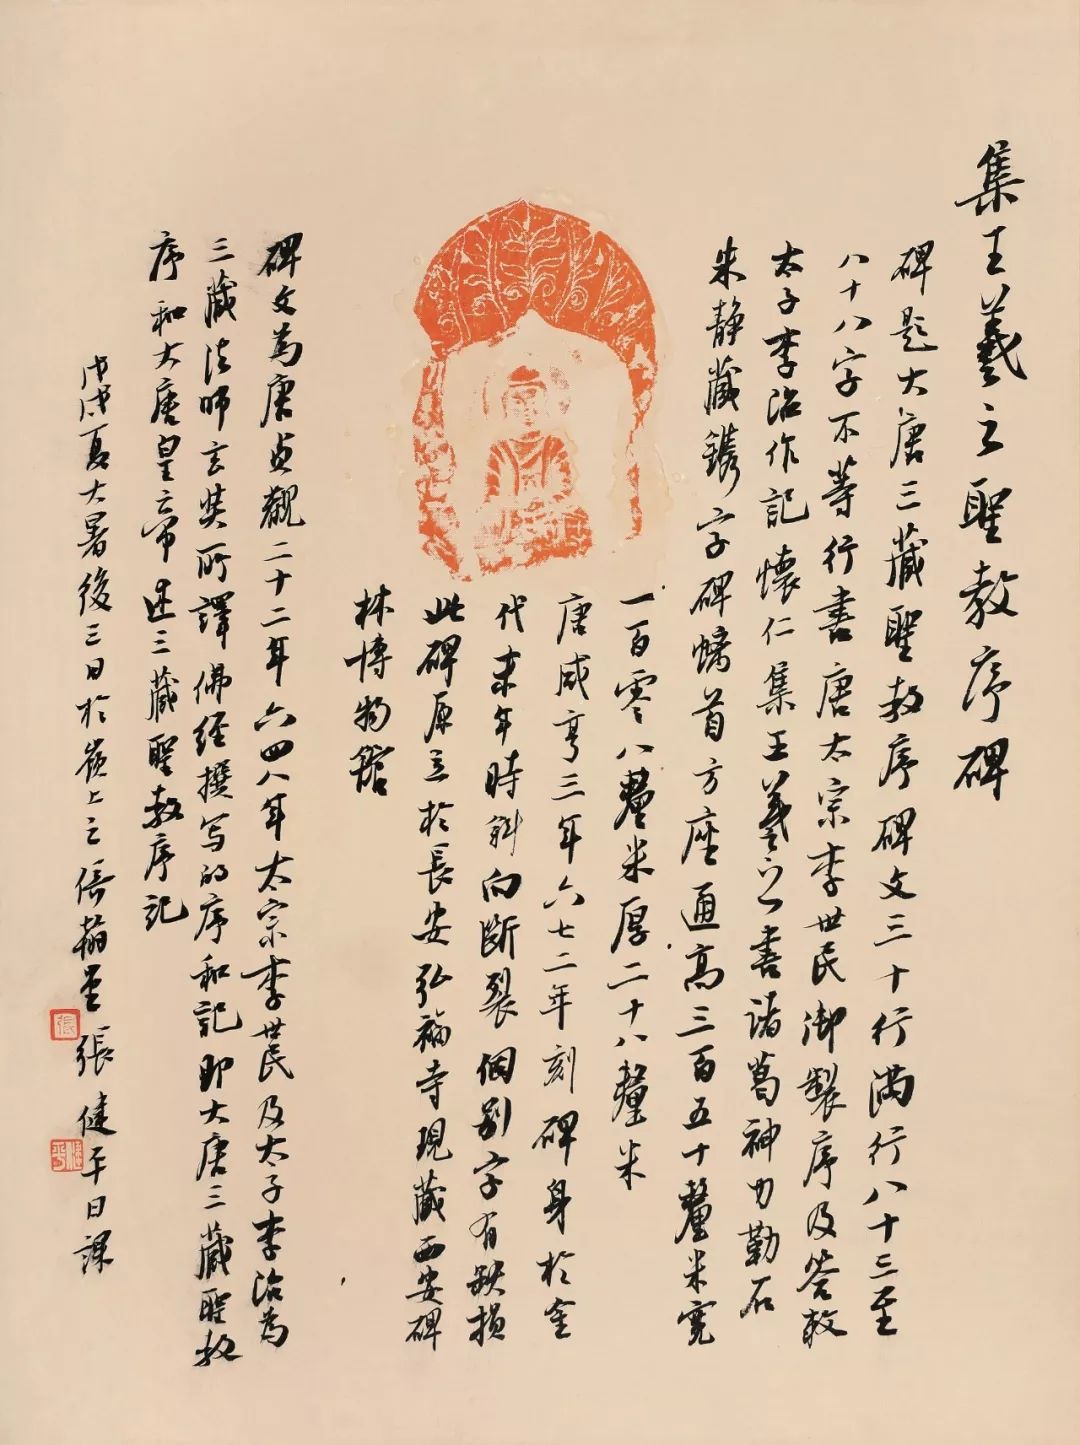 集王羲之聖教序碑
碑題大唐三藏聖教序碑文三十行滿行八十三至
八十八字不等行書唐太宗李世民御製序及答敕
太子李治作記懷仁集王羲之書諸葛神力勒石
朱靜藏鐫字碑螭首方座通高三百五十釐米寬
一百零八釐米厚二十八釐米
唐咸亨三年六七二年刻碑身於金
代末年時斜向斷裂個別字有缺損
此碑原立於長安弘福寺現藏西安碑
林博物館
碑文為唐貞觀二十二年六四八年太宗李世民及太子李治為
三藏法師玄奘所譯佛經撰写的序和記即大唐三藏聖教
序和大唐皇帝述三藏聖教序記
戊戌夏大暑後三日於嶺上之倚翰堂張健平日課
張
健平